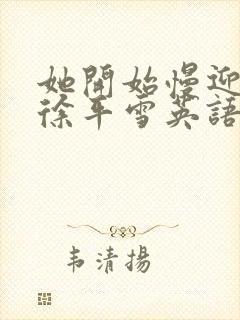 她開始慢迎
徐年雪英語
韦清揚